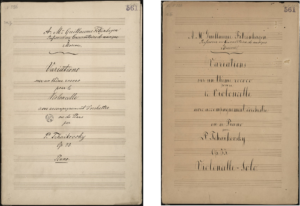 367
A Mr Guillaume Fitzenhagen
Variations
sur un thème rococo
pour le
Violoncelle
avec accompagnement d'orchestre
ou de Piano
par
P. Tschaïkovsky
Op. 33
A Mr Guillaume Fitzenhagen
Variations
sur un thème rococo
le Violoncelle
avec accompagnement d'orchestre
ou Piano
par
P. Tschaïkovsky
Op. 33
Violoncelle-Solo